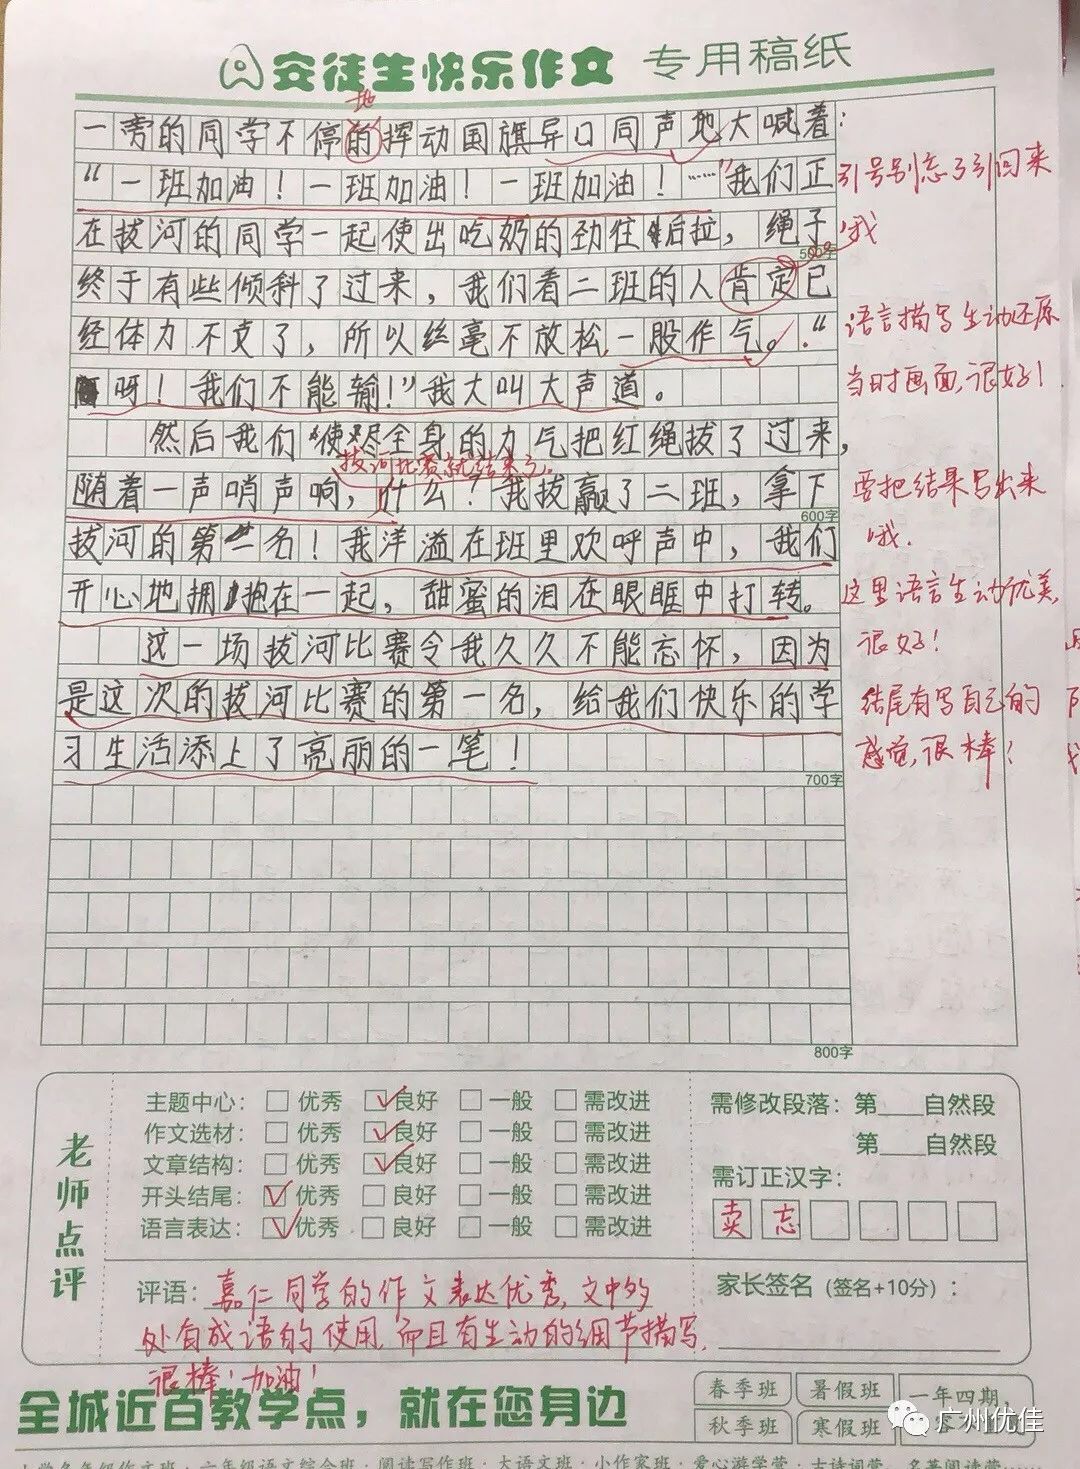 交徒生快乐作文 专用稿纸
地
一旁的同学不停的挥动国旗异口同声地大喊着：
“一班加油！一班加油！一班加油！……”我们正
引号别忘了引回来
哦
在拔河的同学一起使出吃奶的劲往后拉，绳子
500字
终于有些倾斜了过来，我们看二班的人肯定已
经体力不支了，所以丝毫不放松，一股作气。“
语言描写生动还原
当时画面，很好！
呀！我们不能输！”我大叫大声道。
然后我们使尽全身的力气把红绳拔了过来，
拔河比赛就结束了。
随着一声哨声响，什么！我拔赢了二班，拿下
600字
要把结果写出来
哦．
拔河的第一名！我洋溢在班里欢呼声中，我们
开心地拥抱在一起，甜蜜的泪在眼眶中打转。
这里语言生动优美，
很好！
这一场拔河比赛令我久久不能忘怀，因为
是这次的拔河比赛的第一名，给我们快乐的学
习生活添上了亮丽的一笔！
700字
结尾有写自己的
感觉，很棒！
800字
老师点评
主题中心：□ 优秀 ☑ 良好 □ 一般 □ 需改进
作文选材：□ 优秀 ☑ 良好 □ 一般 □ 需改进
文章结构：□ 优秀 ☑ 良好 □ 一般 □ 需改进
开头结尾：☑ 优秀 □ 良好 □ 一般 □ 需改进
语言表达：☑ 优秀 □ 良好 □ 一般 □ 需改进
需修改段落：第____自然段
第____自然段
需订正汉字：
卖 忘
评语：嘉仁同学的作文表达优秀，文中多
处有成语的使用，而且有生动的细节描写，
很棒！加油！
家长签名（签名+10分）：
全城近百教学点，就在您身边
春季班 暑假班 一年四期，
秋季班 寒假班
广州优佳
六年级语文综合班·阅读写作班·大语文班·小作家班·爱心游学营·古诗词营